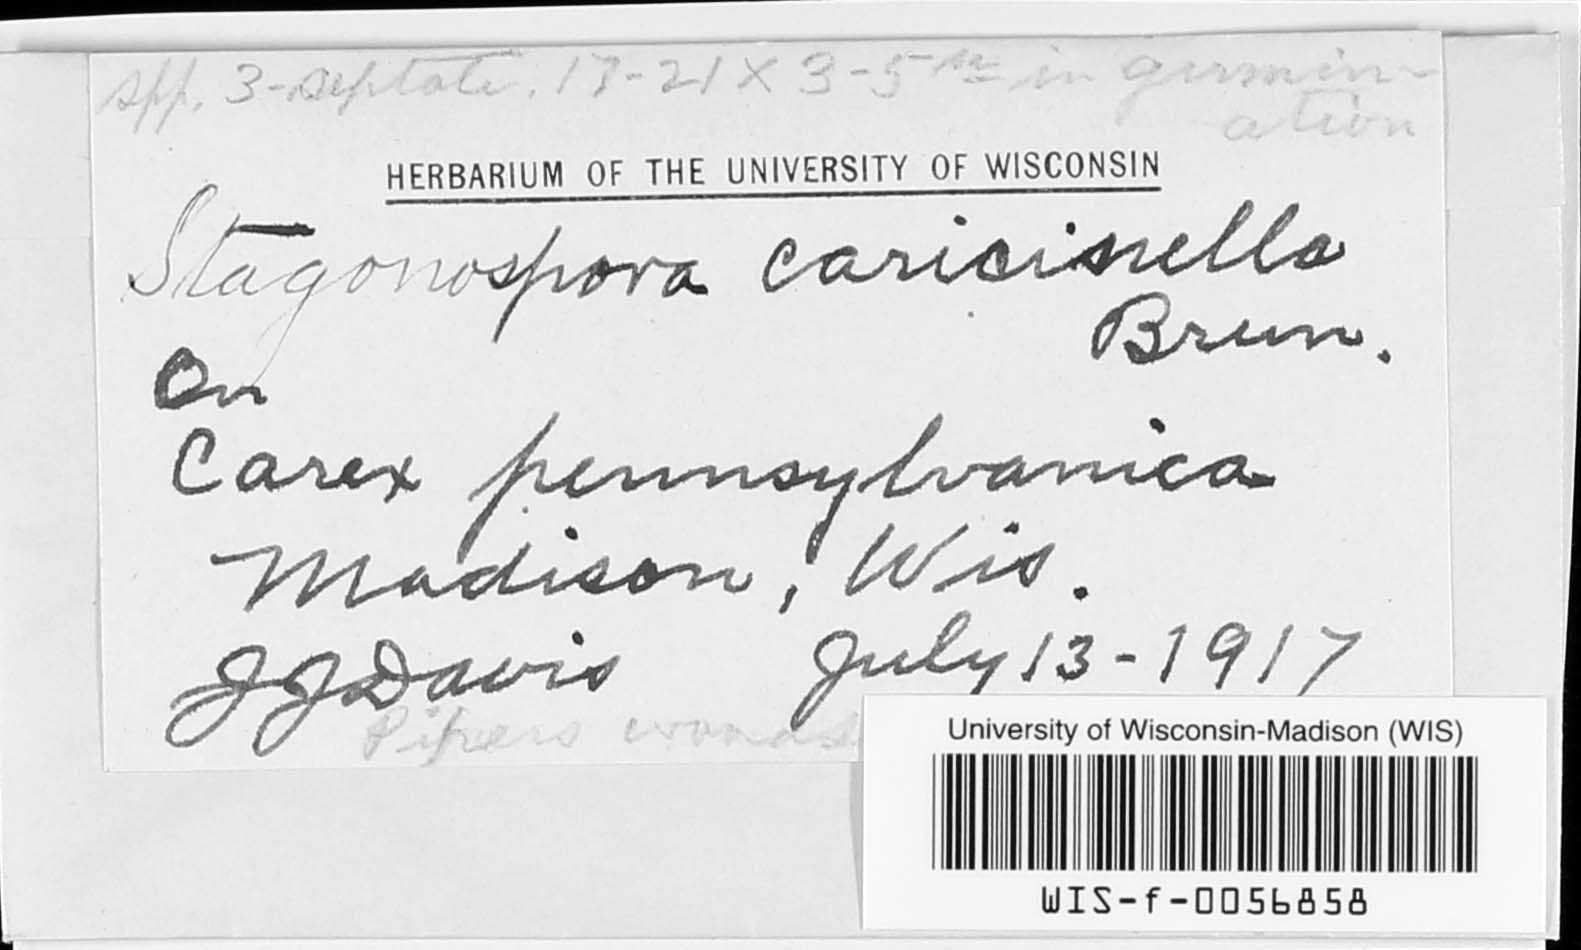 spp. 3-septate. 17-21 X 3-5 µ in germin-
ation
HERBARIUM OF THE UNIVERSITY OF WISCONSIN
Stagonospora caricinella
Brun.
On
Carex pennsylvanica
Madison, Wis.
JJDavis July 13-1917
Pipers woods
University of Wisconsin-Madison (WIS)
WIS-f-0056858